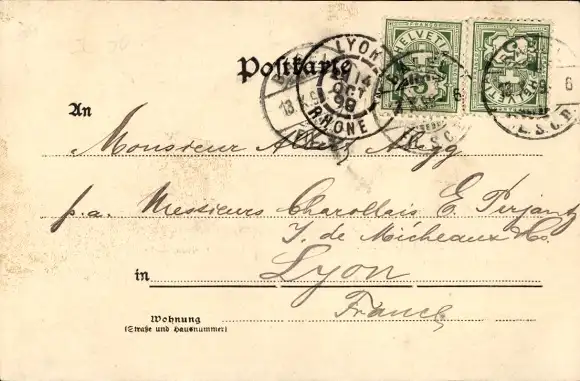 Postkarte
LYON
14
OCT
99
RHONE
HELVETIA
5
6
An
Monsieur Albert
p.a. Messieurs Charollais E.
J. de Micheaux
in Lyon
France
Wohnung
(Straße und Hausnummer)